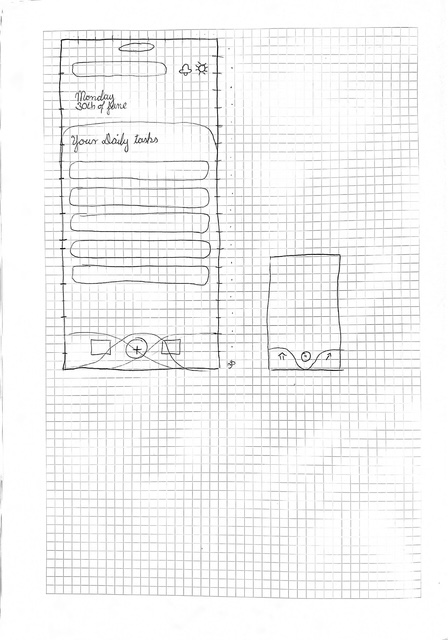 Monday
30th of June
Your Daily tasks